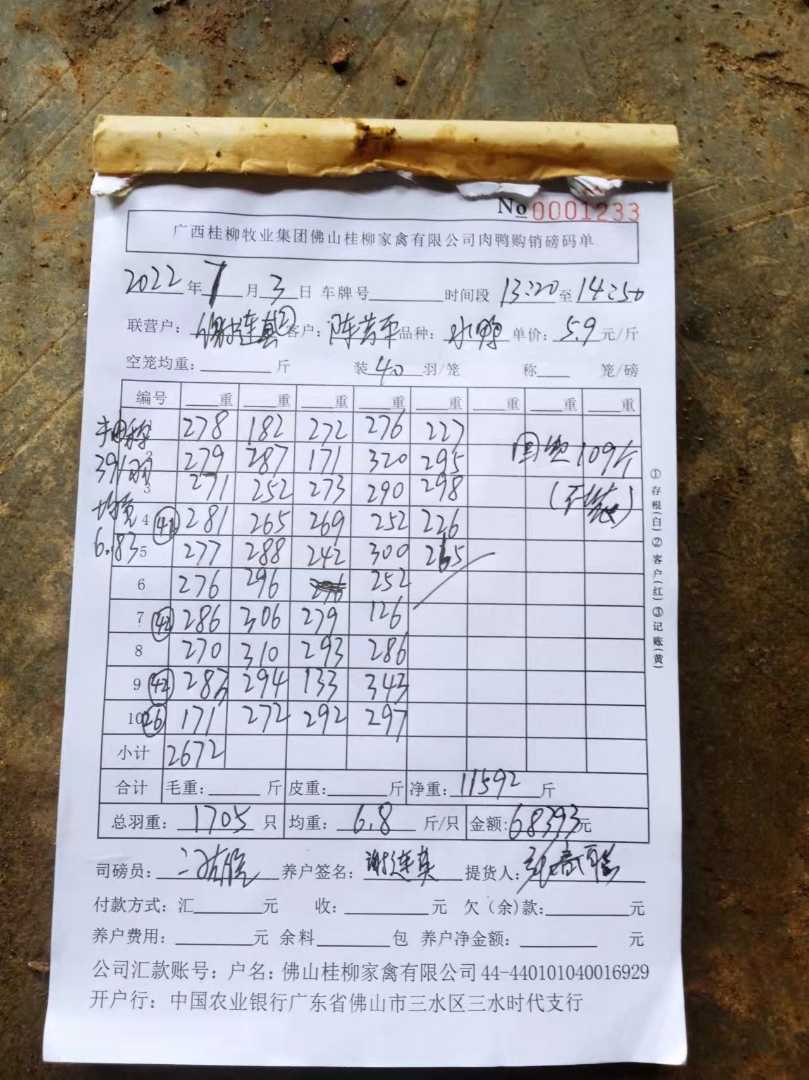 No 0001233
广西桂柳牧业集团佛山桂柳家禽有限公司肉鸭购销磅码单
2022年1月3日 车牌号 时间段 13:20至14:50
联营户：谢连真② 客户：陈芳平 品种：水鸭 单价：5.9元/斤
空笼均重： 斤 装40羽/笼 称 笼/磅
编号 重 重 重 重 重 重 重
1 278 182 272 276 227
2 279 287 171 320 295 109斤
391羽 3 271 252 273 290 298
均重 4 ㊶ 281 265 269 252 226
6.83 5 277 288 242 300 265
6 276 296 252
7 ㊷ 286 306 279 126
8 270 310 293 286
9 ㊷ 283 294 133 343
10 ㉖ 171 272 292 297
小计 2672
合计 毛重： 斤 皮重： 斤 净重：11592斤
总羽重：1705只 均重：6.8斤/只 金额：68393元
司磅员： 养户签名：谢连真 提货人：
付款方式：汇 元 收： 元 欠（余）款： 元
养户费用： 元 余料 包 养户净金额： 元
公司汇款账号：户名：佛山桂柳家禽有限公司 44-440101040016929
开户行：中国农业银行广东省佛山市三水区三水时代支行
①存根(白)②客户(红)③记账(黄)